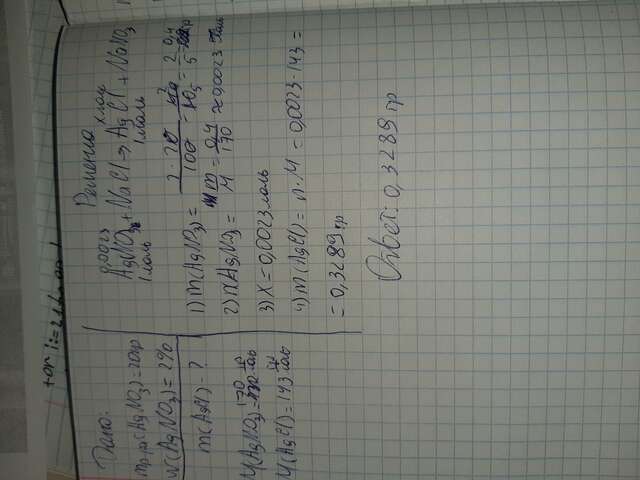 Дано:
mр-ра(AgNO3)=20гр
w(AgNO3)=2%
m(AgCl)-?
M(AgNO3)=170 гр/моль
M(AgCl)=143 гр/моль
Решение
0,0023 x моль
AgNO3+NaCl→AgCl+NaNO3
1 моль 1 моль
1) m(AgNO3)= 2·20/100 = 2/5 = 0,4 гр
2) n(AgNO3)= m/M = 0,4/170 ≈0,0023 моль
3) X=0,0023 моль
4) m(AgCl)= n·M = 0,0023·143=
=0,3289 гр
Ответ: 0,3289 гр